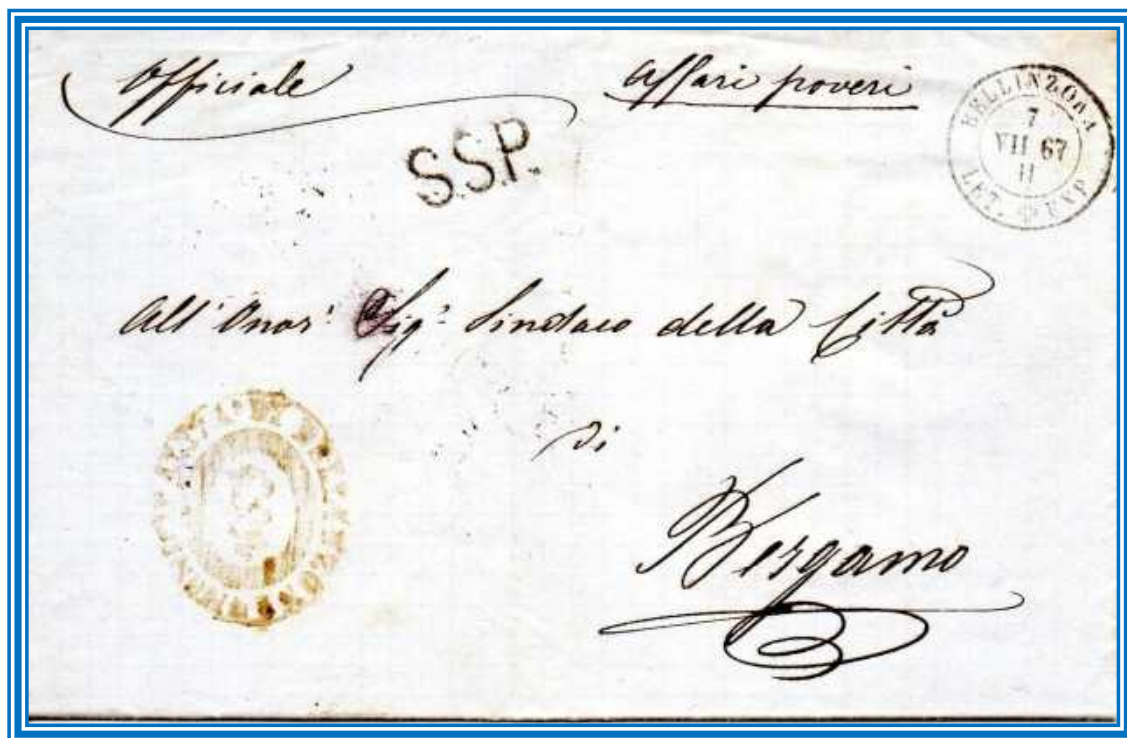 Officiale
Affari poveri
S.S.P.
BELLINZONA
7
VII 67
II
LET. EXP.
All' Onor! Sig! Sindaco della Città
di
Bergamo